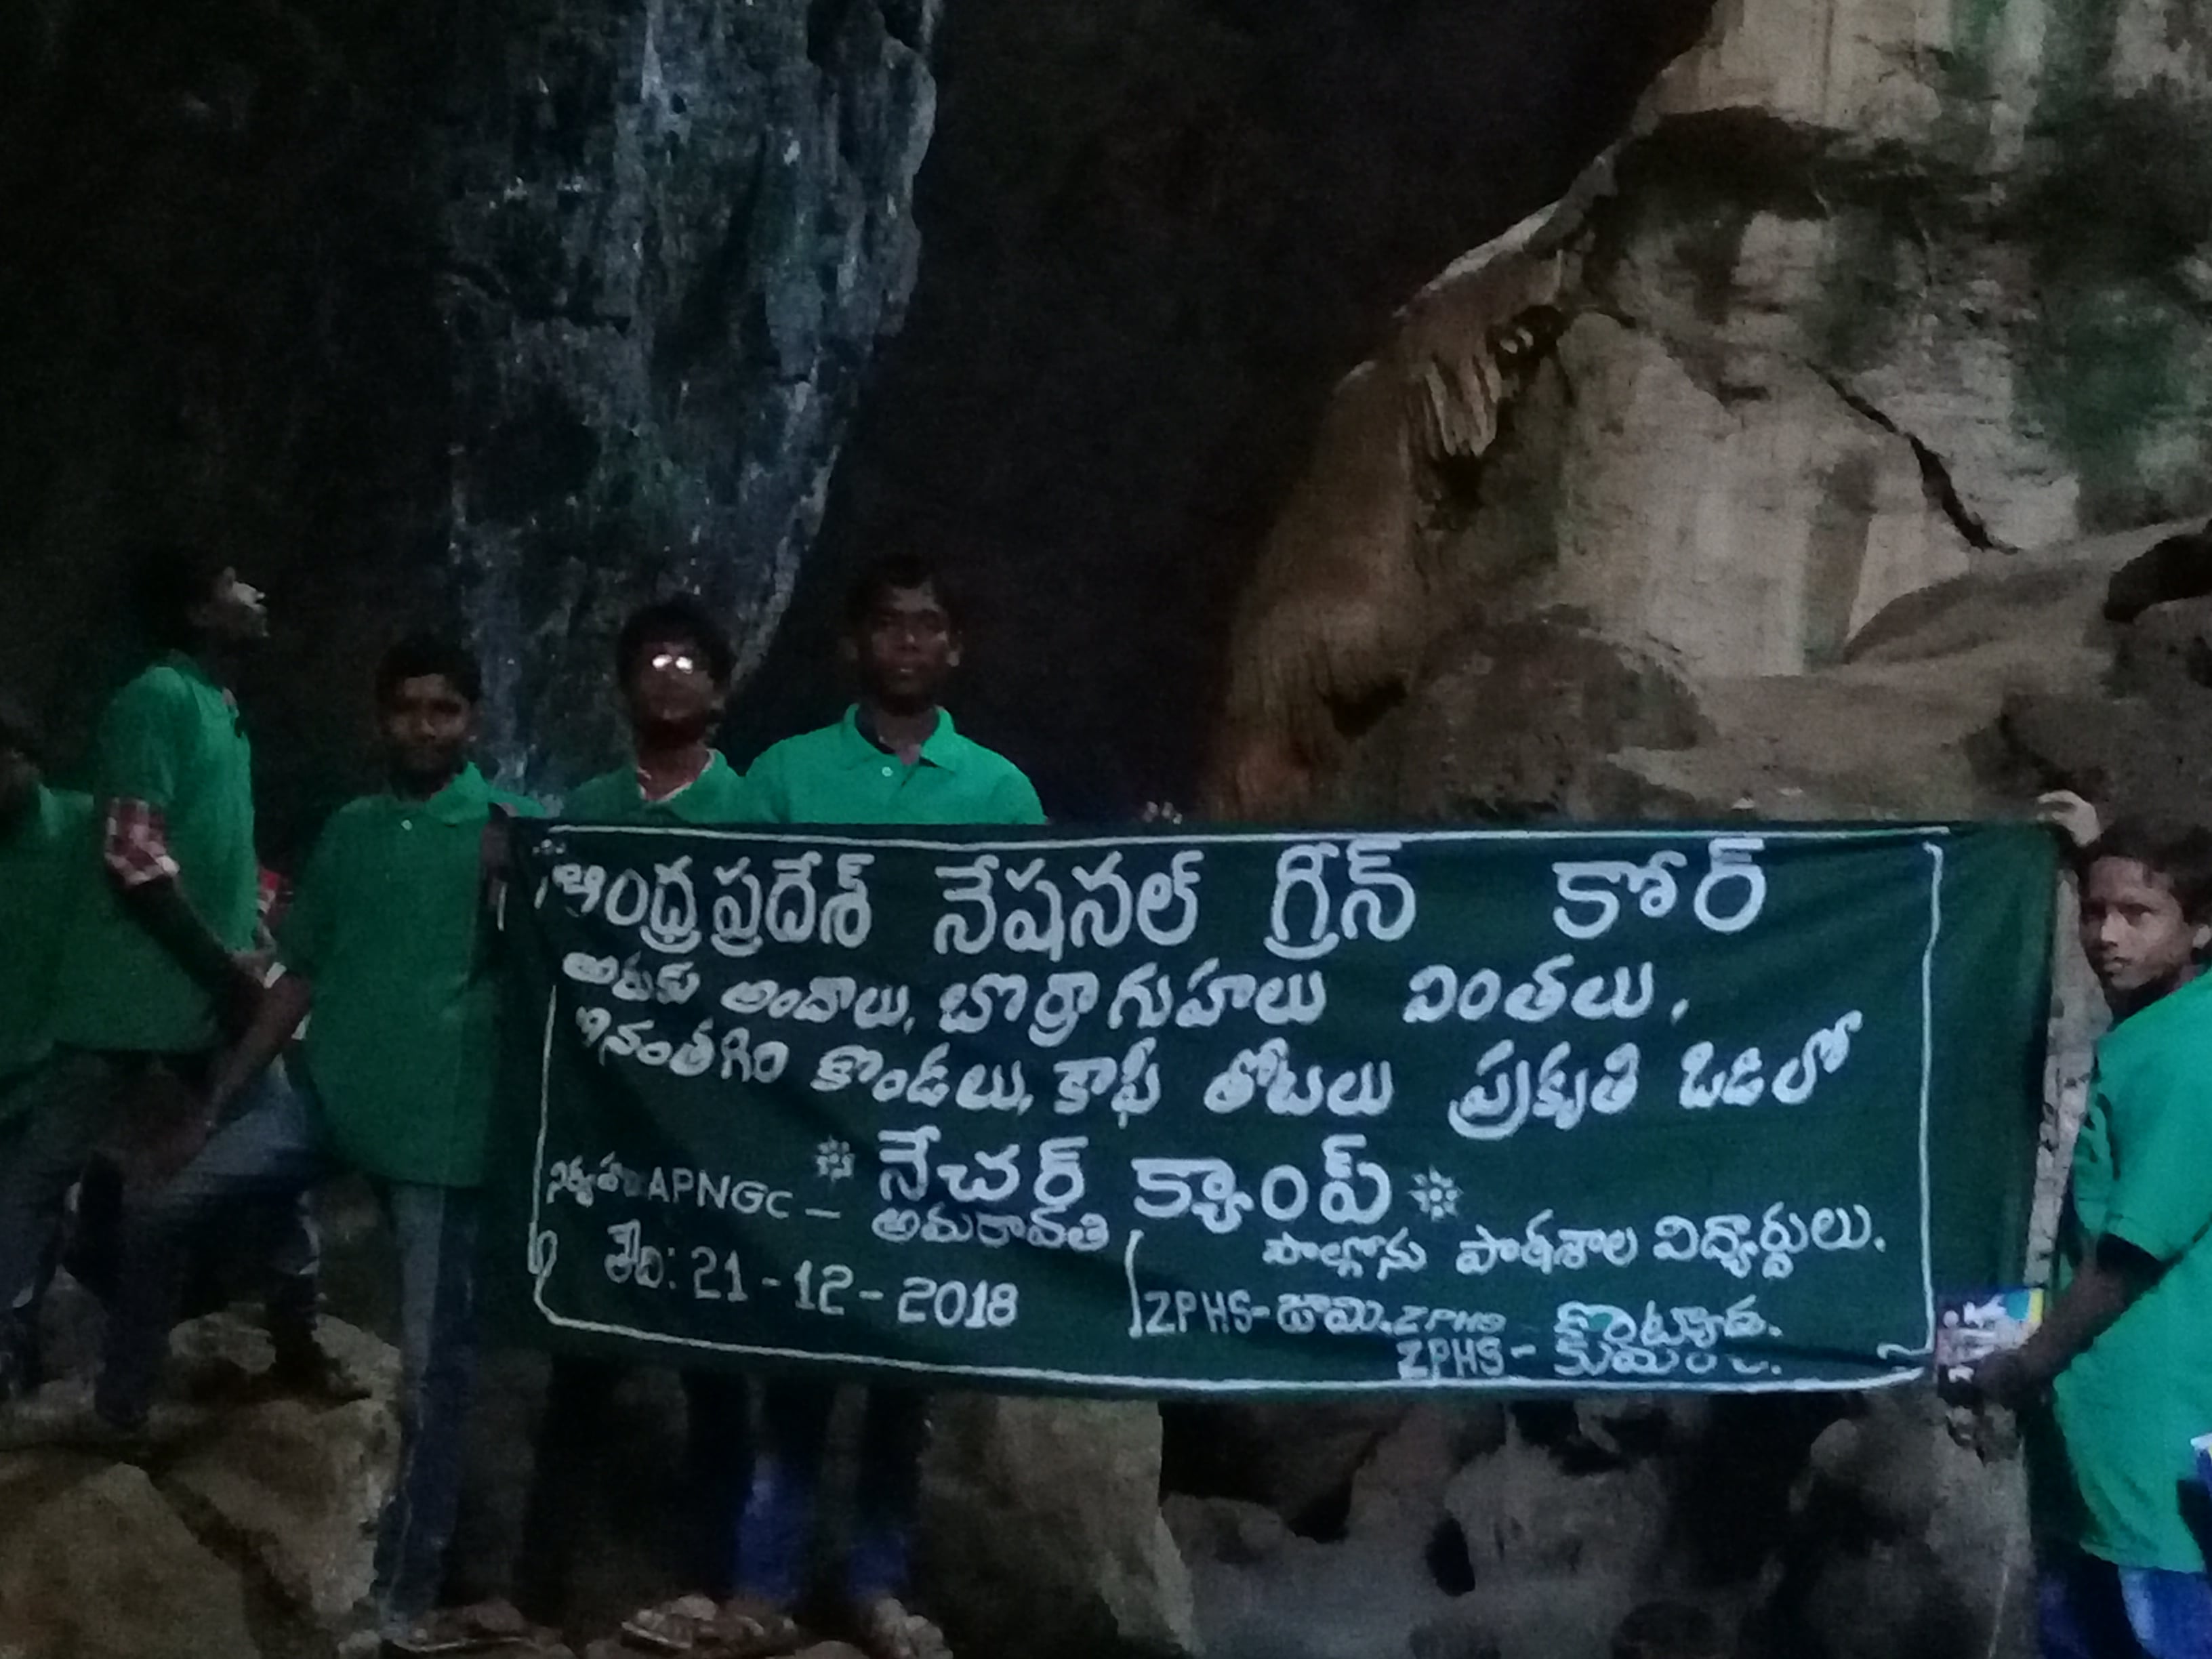 ఆంధ్రప్రదేశ్ నేషనల్ గ్రీన్ కోర్
అరకు అందాలు, బొర్రా గుహలు వింతలు,
అనంతగిరి కొండలు, కాఫీ తోటలు ప్రకృతి ఒడిలో
* నేచర్ క్యాంప్ *
నిర్వహణ APNGC - అమరావతి
తేది: 21-12-2018
పాల్గొను పాఠశాల విద్యార్థులు.
ZPHS-జామి. ZPHS
ZPHS-